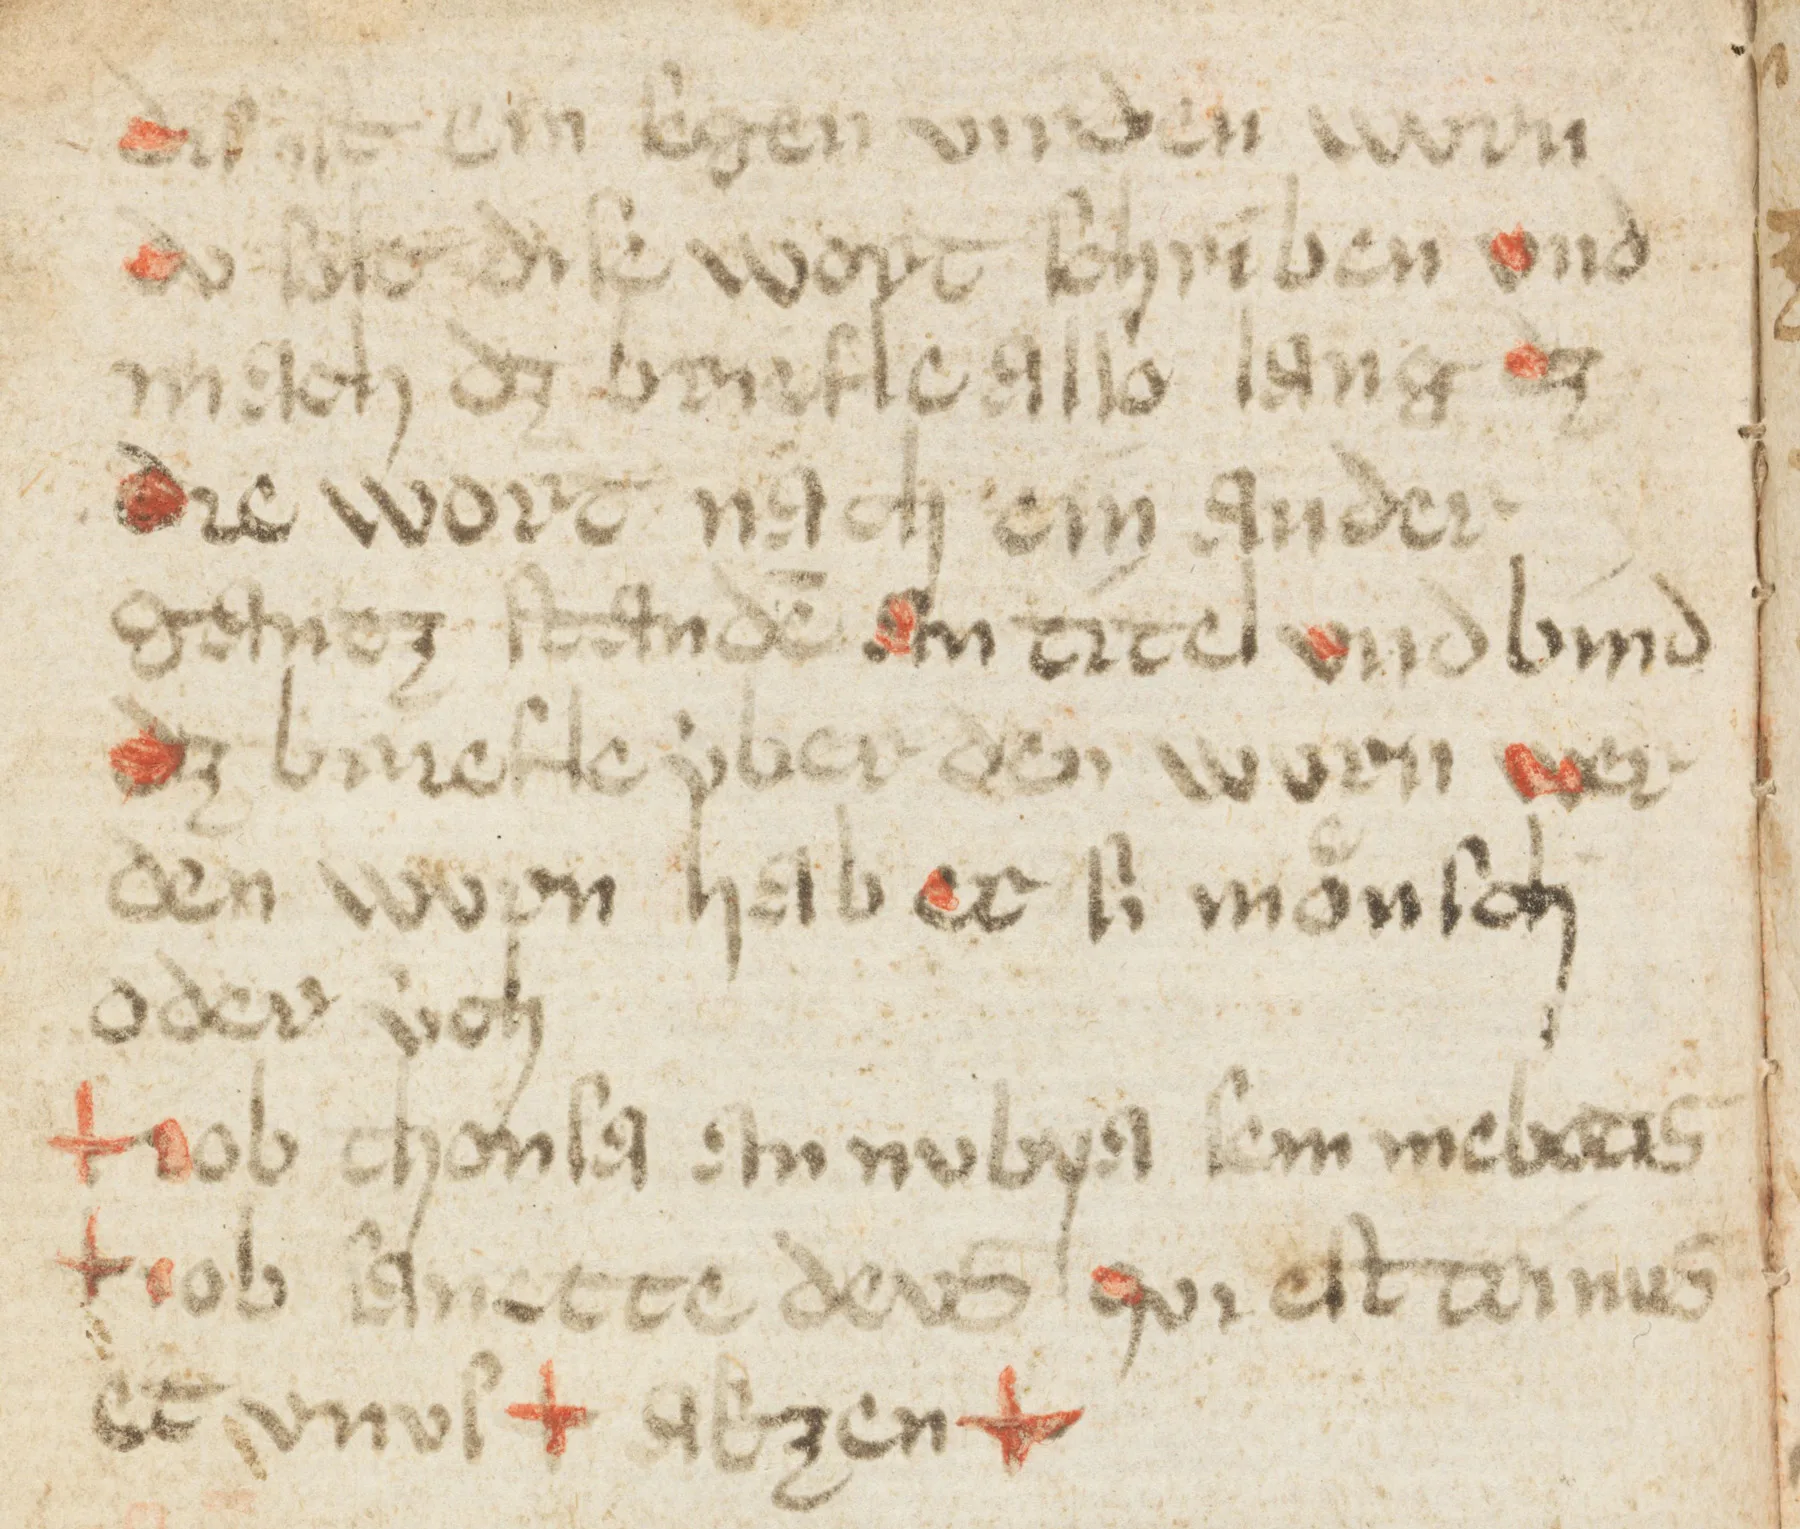 dis ist ein segen vnr den wurn
du solt dise wort schriben vnd
mach dz briefle also lang dz
die wort nach ein ander
gancz standē an titel vnd bind
dz briefle v́ber den wurn wer
den wurn hab er si mönsch
oder vich
+ iob thonsa an nubya sem mebatis
+ iob sanctte deus qui est ternius
et vnus +  +